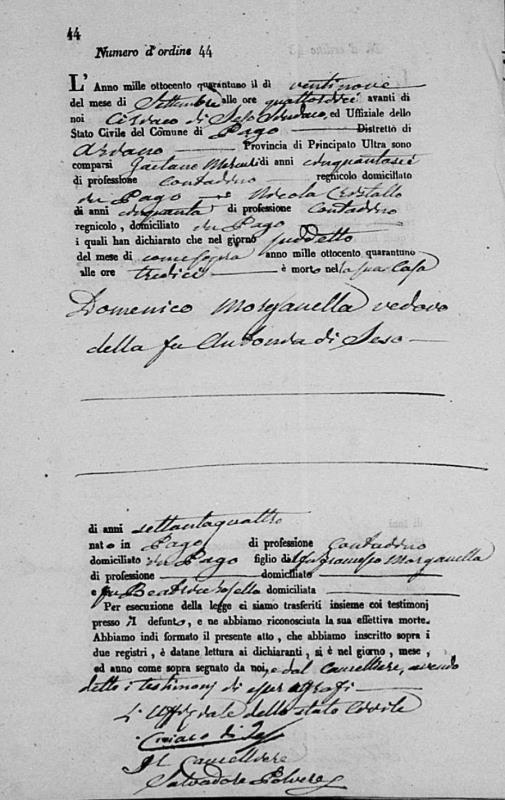 44
Numero d'ordine 44
L' Anno mille ottocento quarantuno il dì ventinove
del mese di Settembre alle ore quattordici avanti di
noi Ciriaco di Jeso Sindaco, ed Uffiziale dello
Stato Civile del Comune di Pago Distretto di
Provincia di Principato Ultra sono
comparsi Gaetano di anni cinquantasei
di professione contadino regnicolo domiciliato
in Pago e Nicola
di anni cinquanta di professione contadino
regnicolo, domiciliato in Pago
i quali han dichiarato che nel giorno suddetto
del mese di come sopra anno mille ottocento quarantuno
alle ore tredici è morto nella sua casa
Domenico Morganella vedovo
della fu di Jeso
di anni settantaquattro
nato in Pago di professione contadino
domiciliato in Pago figlio di Morganella
di professione domiciliato
e fu Beatrice domiciliata
Per esecuzione della legge ci siamo trasferiti insieme coi testimonj
presso il defunto, e ne abbiamo riconosciuta la sua effettiva morte.
Abbiamo indi formato il presente atto, che abbiamo inscritto sopra i
due registri, è datane lettura ai dichiaranti, si è nel giorno, mese,
ed anno come sopra segnato da noi, e dal cancelliere, avendo
detto i testimonj di esser
L'Uffiziale dello stato Civile
Ciriaco di Jeso
Il Cancelliere
Salvadore Polvere